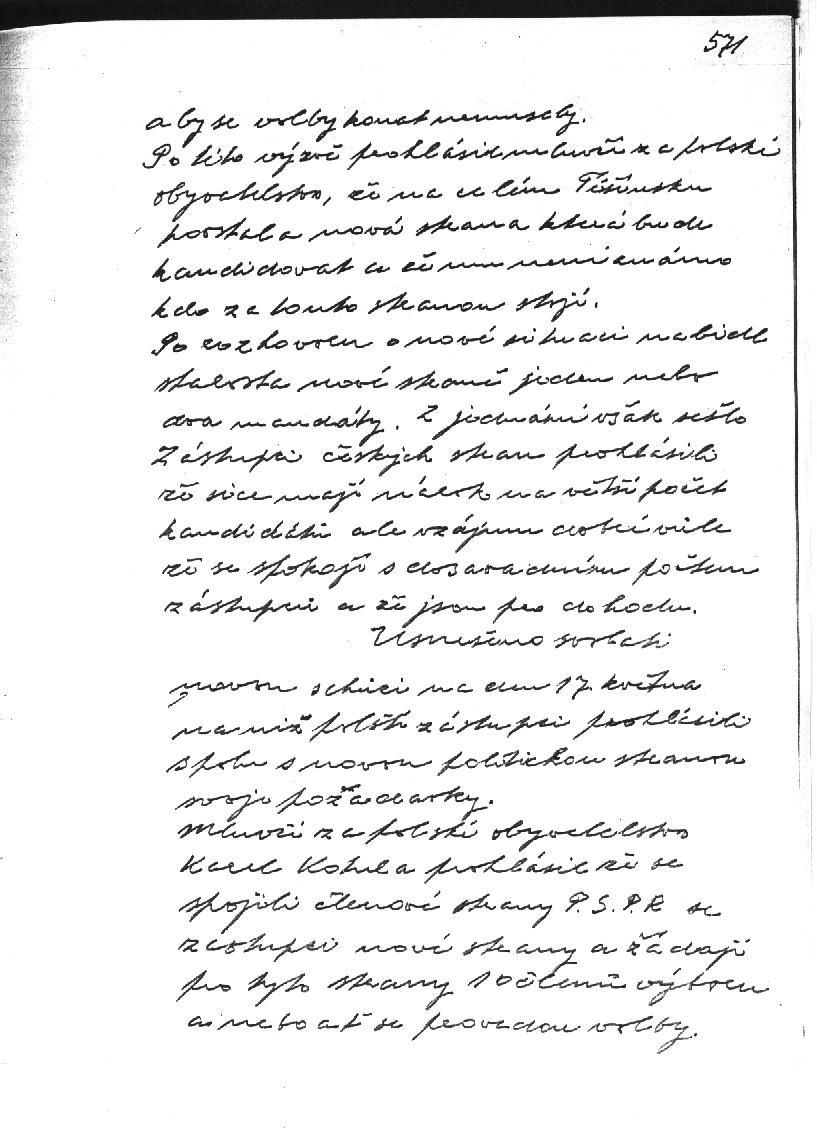 571
aby se volby konat nemusely.
Po této výzvě prohlásil mluvčí za polské
obyvatelstvo, že na celém Těšínsku
povstala nová strana která bude
kandidovat a že mu není známo
kdo za touto stranou stojí.
Po rozhovoru o nové situaci nabídl
starosta nové straně jeden nebo
dva mandáty. Z jednání však sešlo
Zástupci českých stran prohlásili
že sice mají nárok na větší počet
kandidátů ale vzájem dobré vůle
že se spokojí s dosavadním počtem
zástupců a že jsou pro dohodu.
Usnešeno svolati
novou schůzi na den 17. května
na niž polští zástupci prohlásili
spolu s novou politickou stranou
svoje požadavky.
Mluvčí za polské obyvatelstvo
Karel Kotula prohlásil že se
spojili členové strany P.S.P.R se
zástupci nové strany a žádají
pro tyto strany 10 členů výboru
a nebo ať se provedou volby.